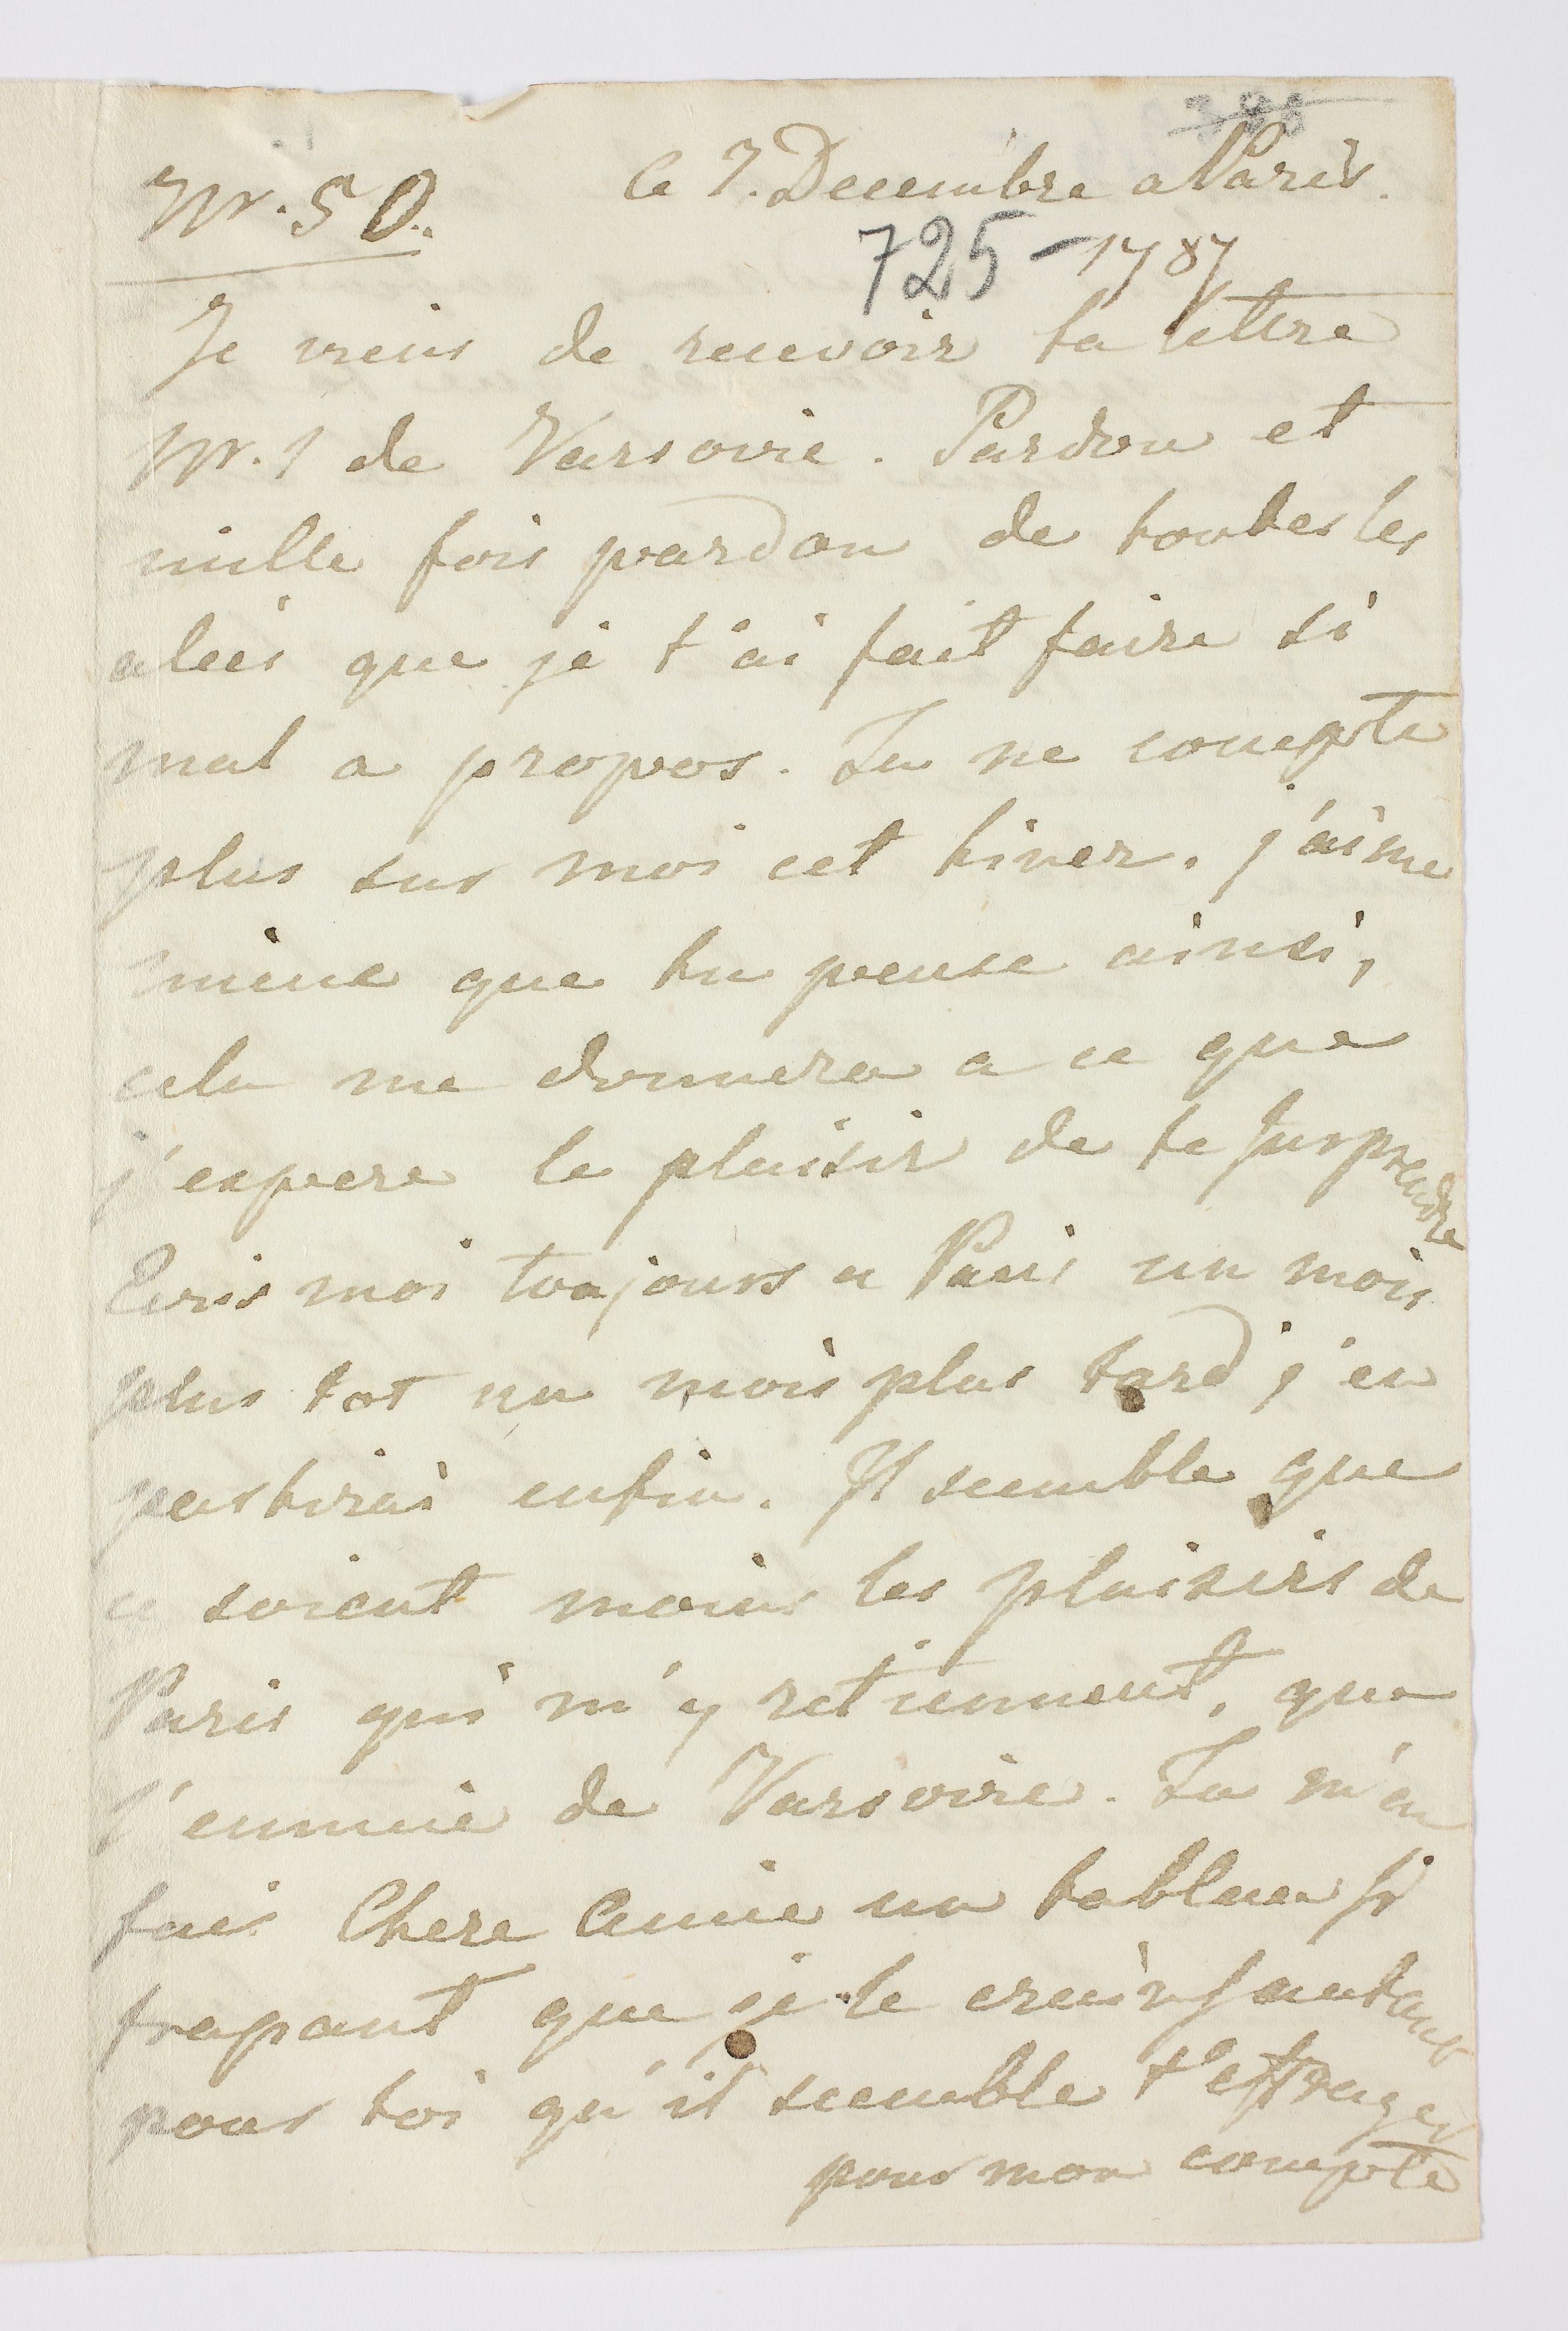 388
Nr. 50. Ce 7. Decembre a Paris.
725 - 1787
Je viens de recevoir ta lettre
Nr. 1 de Varsovie. Pardon et
mille fois pardon de toutes les
que je t'ai fait faire si
mal a propos. Tu ne compte
plus sur moi cet hiver. j'aime
même que tu pense ainsi,
cela me donnera a ce que
j'espere le plaisir de te surprendre
Ecris moi toujours a Paris un mois
plus tot un mois plus tard j'en
partirai enfin. Il semble que
ce soient moins les plaisirs de
Paris qui m'y retiennent, que
l'ennuie de Varsovie. Tu m'en
fais Chere Amie un tableau si
frapant que je le crains autant
pour toi qu'il semble t'effrayer
pour mon compte